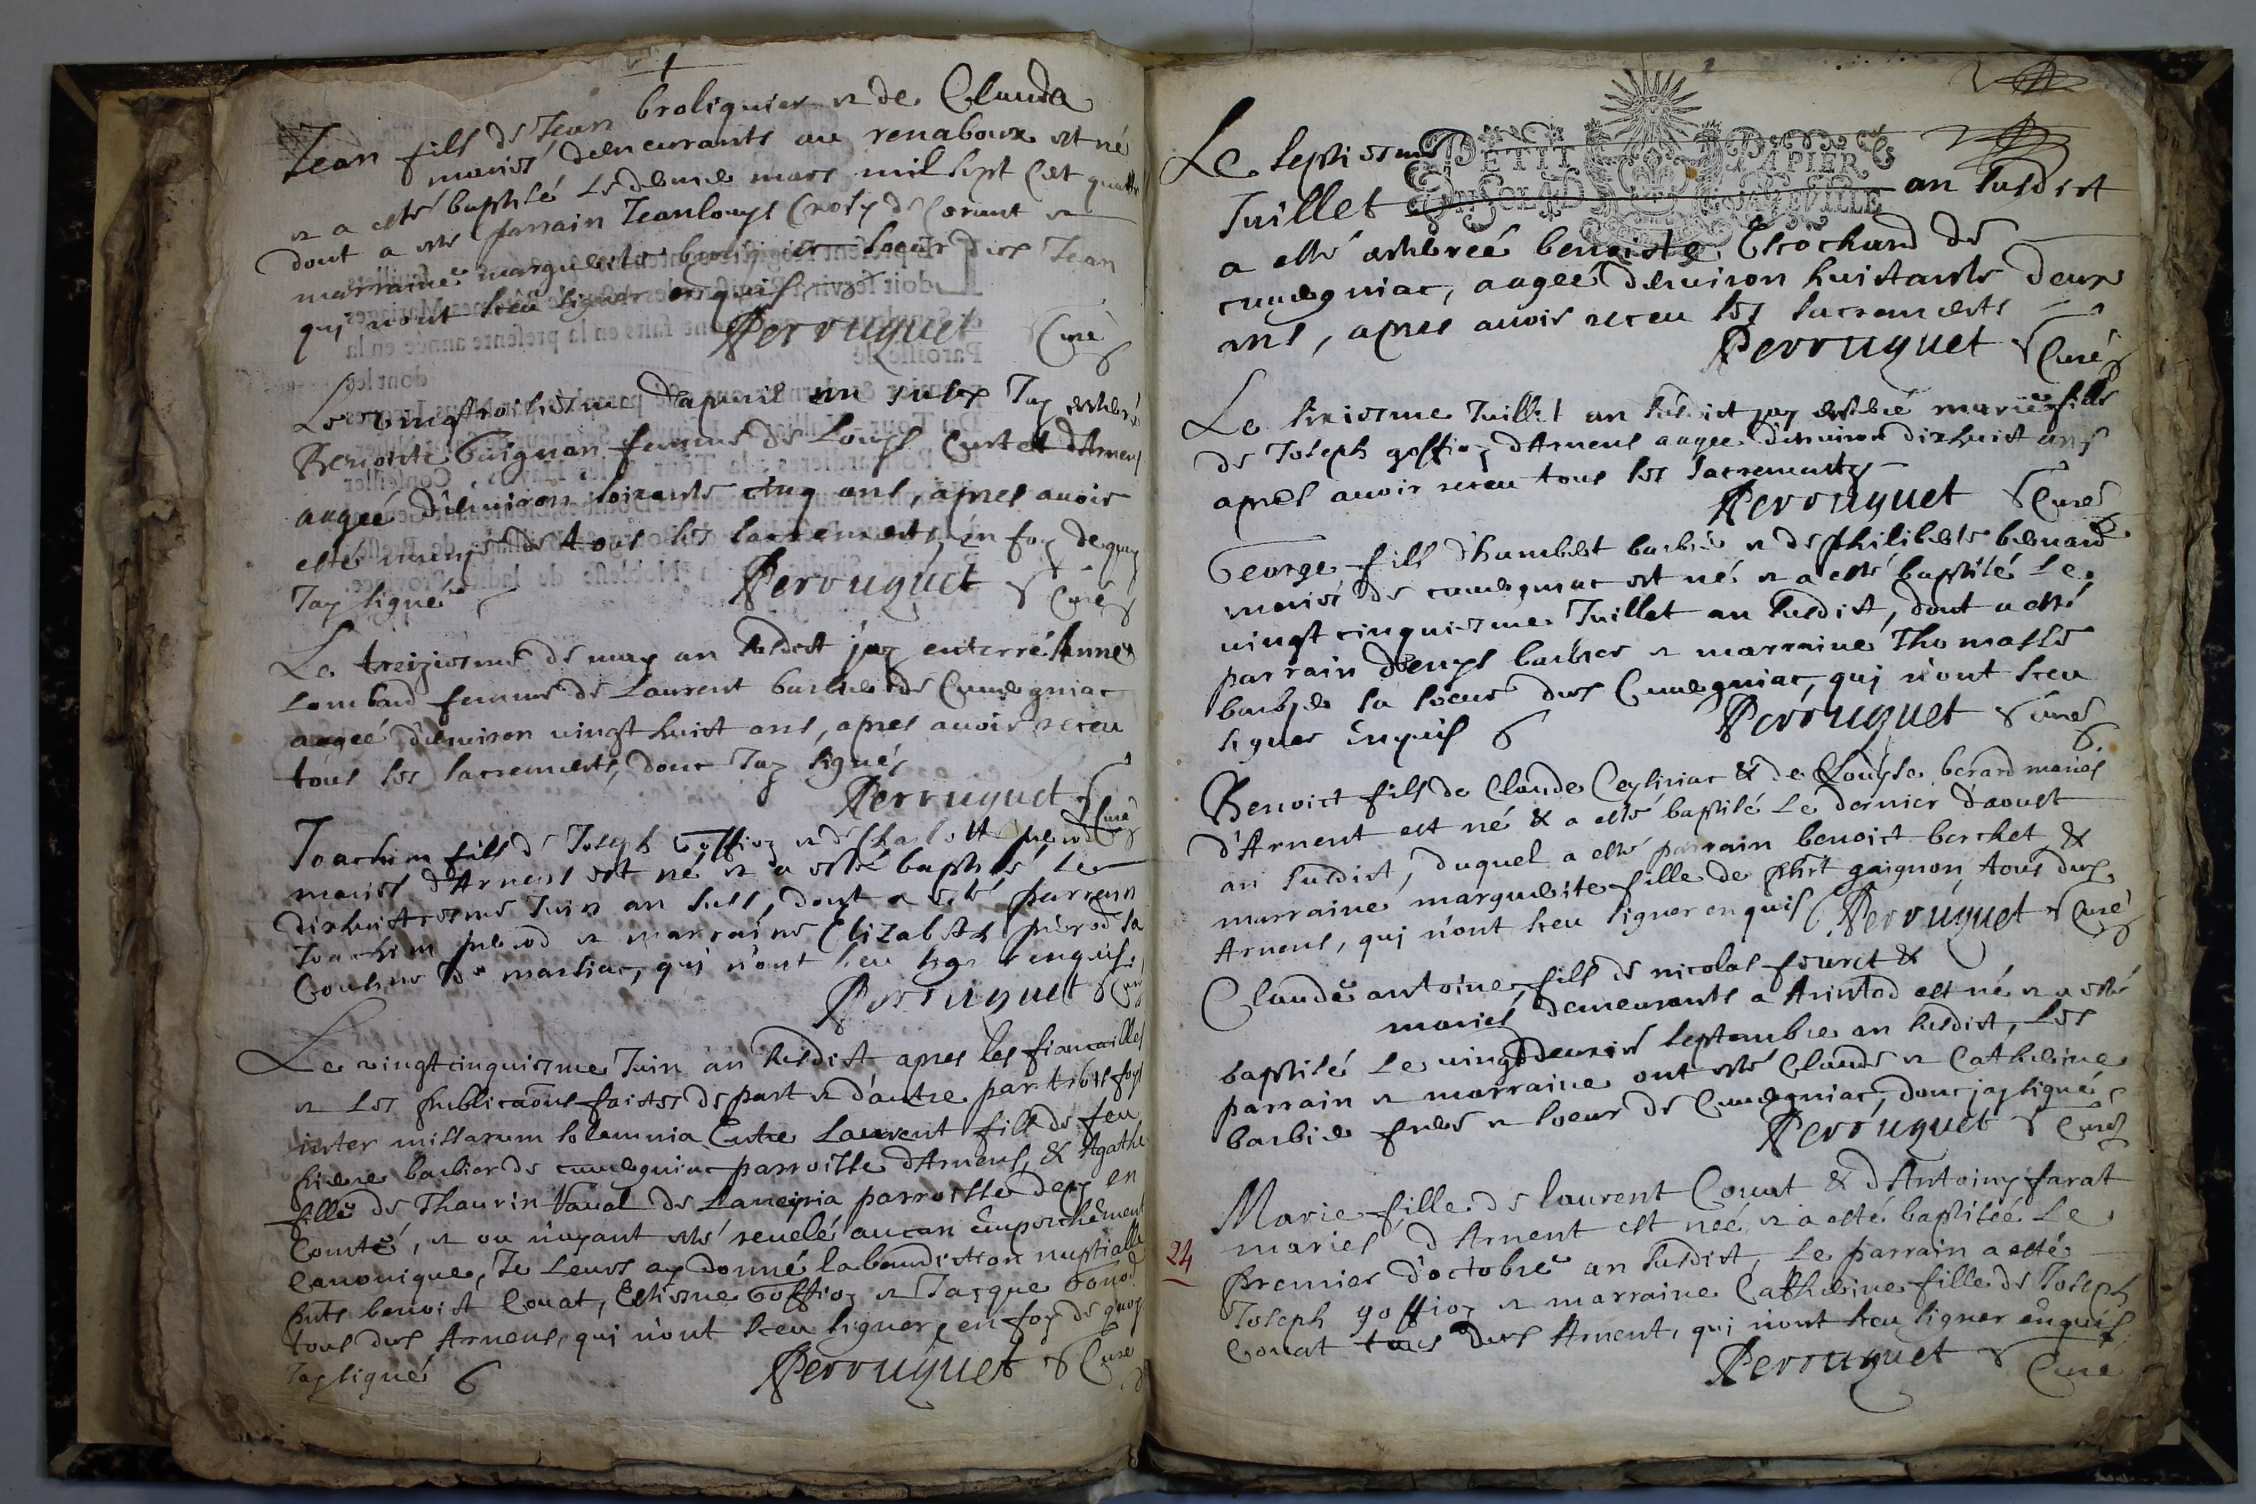 Jean fils de Jean broliquier & de Clauda
mariés demeurants au renaboux est né
& a esté baptisé le dernier mars mil sept cent quattre
dont a esté parrain Jean louys Crosy de Corant &
marraine marguerite soeur dud Jean
qui n'ont sceu signer enquis
Perrouquet Curé
Le vingttroisiesme d'apuril an susd J'ay enterré
Benoiste Guignon femme de Louys Curtet d'Arnens
aagée d'enuiron soixante cinq ans, apres auoir
esté muny de tous les sacrements, en foy de quoy
J'ay signé
Perrouquet Curé
Le treiziesme de may an susdict j'ay enterré Anne
Lombard femme de Laurent barbier de Cuuergniac
aagée d'enuiron vingt huict ans, apres auoir receu
tous les sacrements, donc J'ay signé
Perrouquet Curé
Joachim fils de Joseph Goffioz & de Charlotte pierod
mariés d'Arnens est né & a esté baptisé le
dixhuictiesme Juin an susd, dont a esté parrein
Joachim pierod & marraine Elizabeth pierod sa
Cousine de martiac, qui n'ont sceu signer enquis
Perrouquet Curé
Le vingtcinquiesme Juin an susdict apres les fiancailles
& les publicaons faictes de part & d'autre par trois foys
inter missarum solemnia Entre Laurent fils de feu
pierre barbier de cuuergniac parroisse d'Arnens, & Agathe
fille de Thaurin Vauat de Laneyria parroisse dep en
Comté, & ou n'ayant esté reuelé aucun Empeschement
Canonique, Je Leurs ay donné la benediction nuptialle
pnts benoist Couat, Estiesne Goffioz & Jacque bonod
tous dud Arnens, qui n'ont sceu signer, en foy de quoy
J'ay signé
Perrouquet Curé
PETIT PAPIER
Le septiesme
Juillet an susdict
a esté enterreé benoiste Crochard de
cuuergniac, aageé d'enuiron huictante deux
ans, apres auoir receu les sacrements
Perrouquet Curé
Le sixiesme Juillet an susdict j'ay enterré marie fille
de Joseph goffioz d'Arnens aagee d'enuiron dixhuict ans
apres auoir receu tous les sacrements
Perrouquet Curé
George fils d'humbert barbier & de philiberte bernard
mariés de cuuergniac est né & a esté baptisé le
vingt cinquiesme Juillet an susdict, dont a esté
parrain denys barbier & marraine Thomasse
barbier sa soeur dud Cuuergniac, qui n'ont sceu
signer Enquis
Perrouquet Curé
Benoict fils de Claude Ceyliriac & de Louyse berard mariés
d'Arnent est né & a esté baptisé Le dernier d'aoust
an susdict, duquel a esté parrain benoict berchet &
marraine marguerite fille de phbt guignon, tous dud
Arnens, qui n'ont sceu signer enquis Perrouquet Curé
Claude antoine fils de nicolas fouret &
mariés demeurants a Arintod est né & a esté
baptisé Le vingtdeuxies septembre an susdict, Les
parrain & marraine ont esté Claude & Catherine
barbier frere & soeur de Cuuergniac, donc j'ay signé
Perrouquet Curé
Marie fille de laurent Couat & d'Antoiny farat
mariés d'Arnent est née & a esté baptisée Le
24
premier d'octobre an susdict, Le parrain a esté
Joseph goffioz & marraine Catherine fille de Joseph
Couat tous dud Arnent, qui n'ont sceu signer enquis
Perrouquet Curé